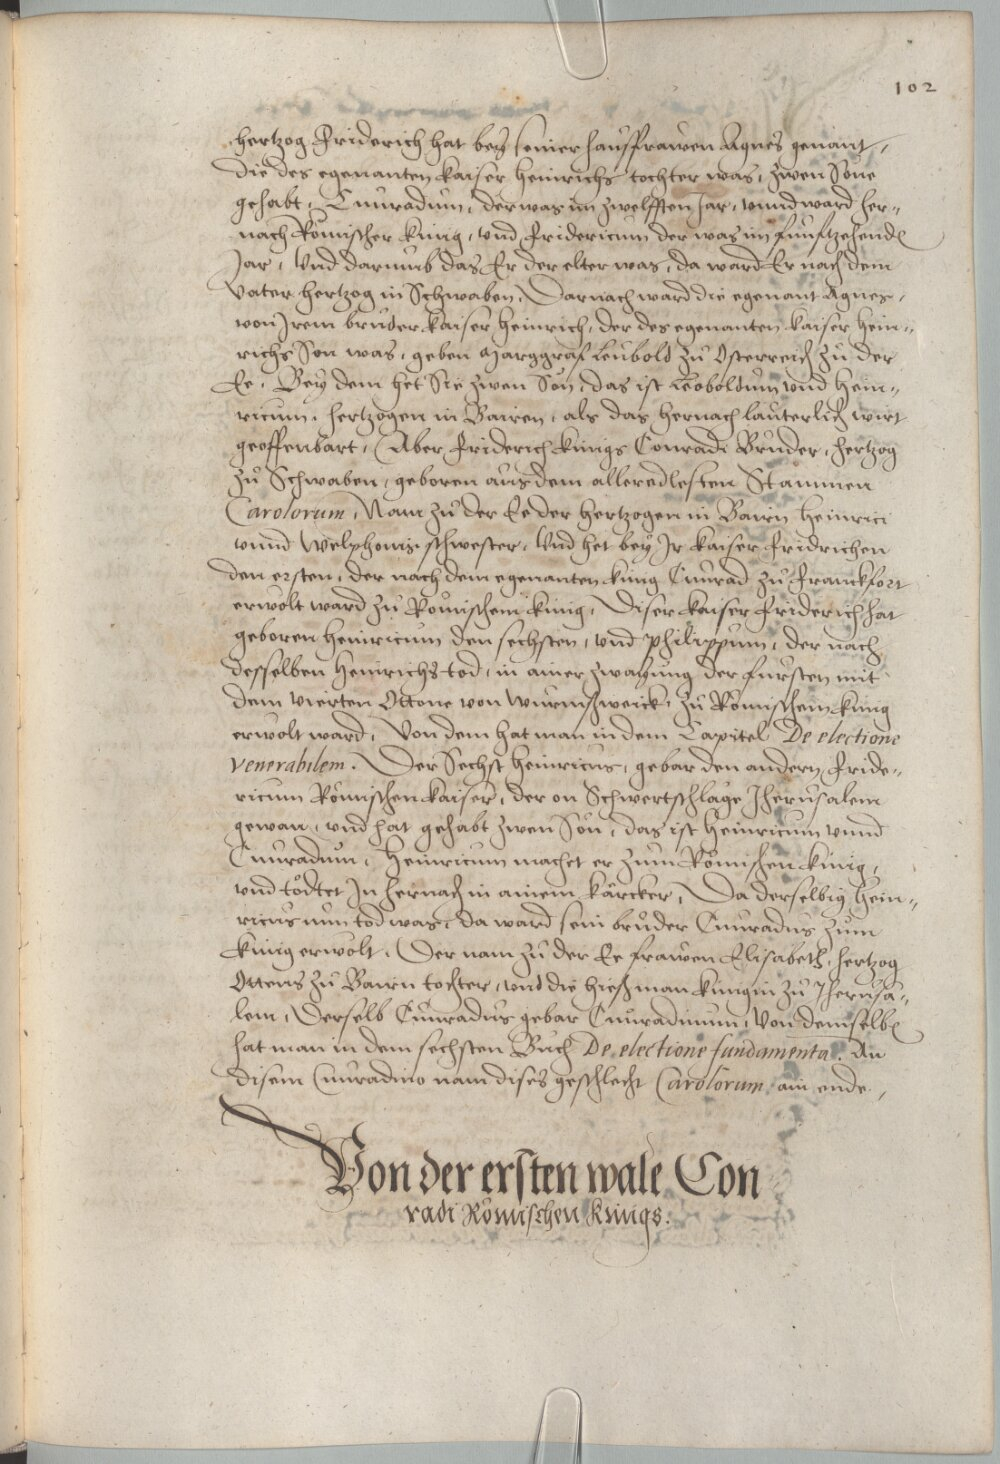 102
hertzog Friderich hat bey seiner hausfrawen Agnes genant,
die des egenanten kaiser Heinrichs tochter was, zwen Söne
gehabt, Cunradum, der was im zwelfften Jar, unnd ward her-
nach Römischer kunig, und Fridericum der was im funftzehende
Jar, Und darumb das Er der elter was, da ward Er nach dem
vater hertzog in Schwaben, Darnach ward die egenant Agnes,
von Jrem bruder kaiser Heinrich, der des egenanten kaiser Hein-
richs Son was, geben Marggraf Leubold zu Osterreich zu der
Ee, Bey dem het Sie zwen Sön, das ist Leoboldum und Hein-
ricum, hertzogen in Bairen, als das hernach lauterlich wirt
geoffenbart, Aber Friderich kunigs Conradi Bruder, hertzog
zu Schwaben, geboren aus dem alleredlesten Stammen
Carolorum, Nam zu der Ee der hertzogen in Bairn Heinrici
unnd Welphonis schwester, Und het bey Jr kaiser Fridrichen
den ersten, der nach dem egenanten kunig Cunrad zu Franckfort
erwölt ward zu Römischem kunig, Diser kaiser Friderich hat
geboren Heinricum den sechsten, und Philippum, der nach
desselben Heinrichs tod, in ainer zwayung der fursten mit
dem vierten Ottone von zu Römischem kunig
erwölt ward, Von dem hat man in dem Capitel De electione
venerabilem. Der Sechst Heinricus, gebar den andern Fride-
ricum Römischen kaiser, der on Schwertschlage Jherusalem
gewan, und hat gehabt zwen Sön, das ist Heinricum unnd
Cunradum, Heinricum machet er zum Römischen kunig,
und tödtet Jn hernach in ainem kärcker, Da derselbig Hein-
ricus nun tod was, da ward sein bruder Cunradus zum
kunig erwölt, Der nam zu der Ee frawen Elisabeth, hertzog
Ottens zu Bairn tochter, und die hieß man kungin zu Jherusa-
lem, Derselb Cunradus gebar Cunradinum, Von demselbe
hat man in dem sechsten Buch De electione fundamenta. An
disem Cunradino nam dises geschlecht Carolorum ain ende,
Von der ersten wale Con
radi Römischen Kunigs.